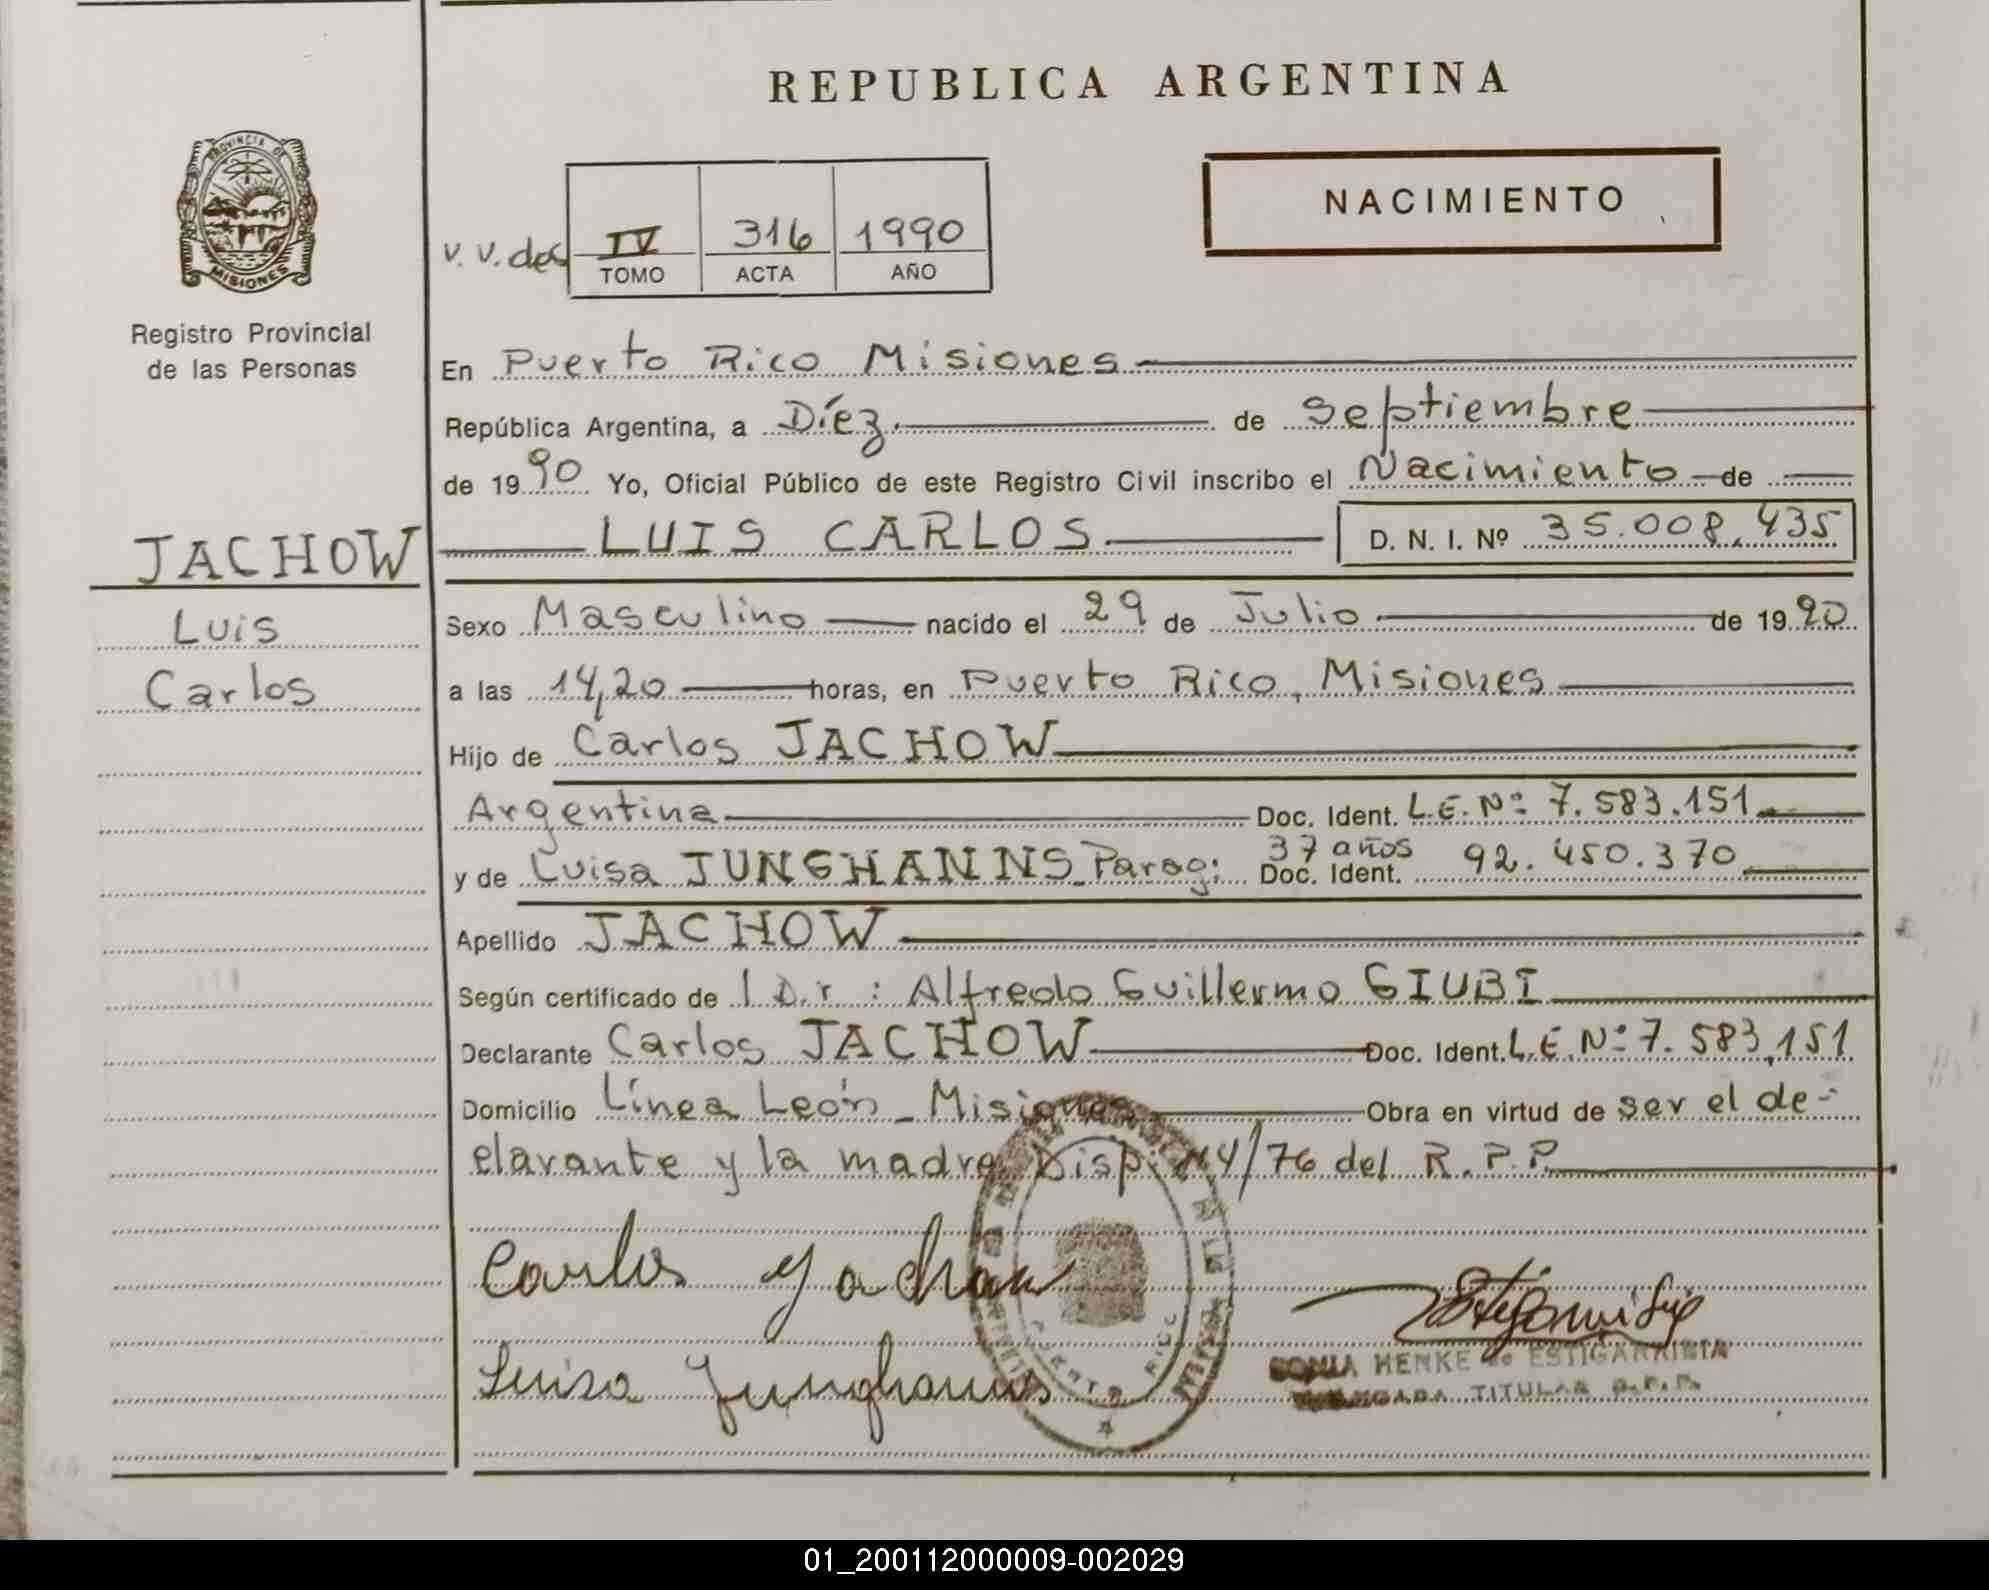 REPUBLICA ARGENTINA
PROVINCIA DE
MISIONES
Registro Provincial
de las Personas
NACIMIENTO
V. V. des
IV 316 1990
TOMO ACTA AÑO
En Puerto Rico Misiones
República Argentina, a Díez de Septiembre
de 1990 Yo, Oficial Público de este Registro Civil inscribo el Nacimiento de
JACHOW
Luis
Carlos
LUIS CARLOS D. N. I. Nº 35.008.435
Sexo Masculino nacido el 29 de Julio de 1990
a las 14,20 horas, en Puerto Rico, Misiones
Hijo de Carlos JACHOW
Argentina Doc. Ident. L.E. Nº: 7.583.151
37 años
y de Luisa JUNGHANNS Parag: Doc. Ident. 92.450.370
Apellido JACHOW
Según certificado de 1 D.r : Alfredo Guillermo GIUBI
Declarante Carlos JACHOW Doc. Ident. L.E. Nº: 7.583.151
Domicilio Línea León - Misiones Obra en virtud de ser el de-
clarante y la madre Disp. 14/76 del R.P.P.
Carlos Jachow
Luisa Junghanns
PUERTO RICO
SONIA HENKE de ESTIGARRIBIA
TITULAR R.P.P.
01_200112000009-002029